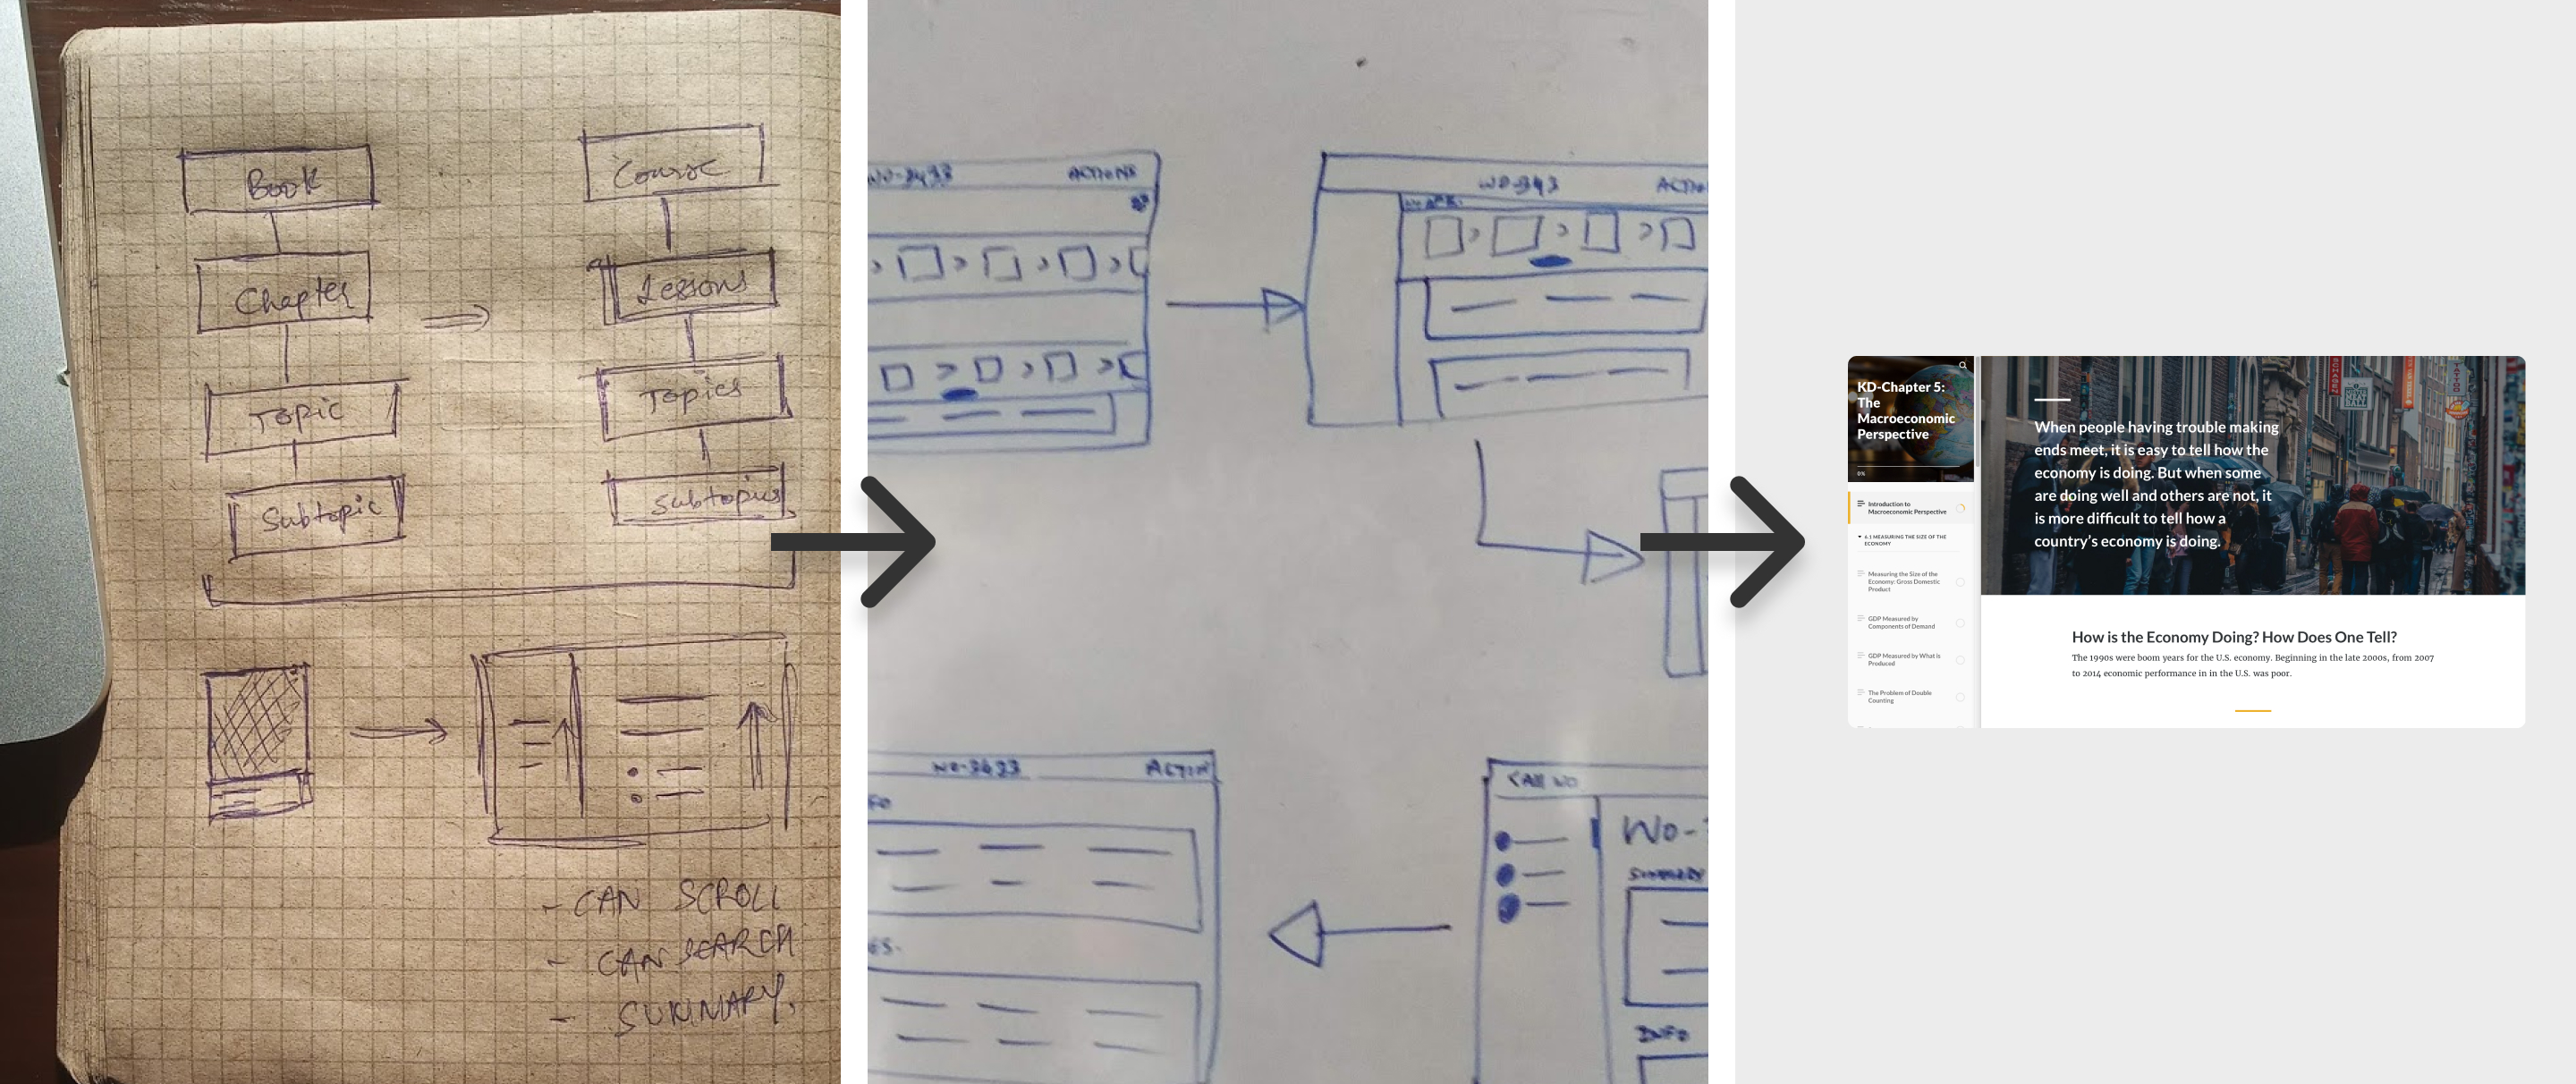 Book
Chapter
Topic
Subtopic
Course
Lessons
Topics
Subtopics
- CAN SCROLL
- CAN SEARCH
- SUMMARY.
WO-3433
ACTIONS
WO-343
ACTIO
WO-3433
ACTION
FO
ES.
<All WO
WO-
SUMMARY
INFO
KD-Chapter 5:
The
Macroeconomic
Perspective
0%
Introduction to
Macroeconomic Perspective
6.1 MEASURING THE SIZE OF THE
ECONOMY
Measuring the Size of the
Economy: Gross Domestic
Product
GDP Measured by
Components of Demand
GDP Measured by What is
Produced
The Problem of Double
Counting
When people having trouble making
ends meet, it is easy to tell how the
economy is doing. But when some
are doing well and others are not, it
is more difficult to tell how a
country's economy is doing.
How is the Economy Doing? How Does One Tell?
The 1990s were boom years for the U.S. economy. Beginning in the late 2000s, from 2007
to 2014 economic performance in in the U.S. was poor.